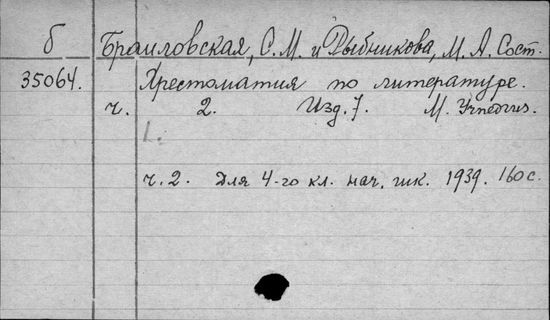 б Браиловская, С. М. и Рыбникова, М. А. Сост.
35064. Хрестоматия по литературе.
ч. 2. Изд. 7. М. Учпедгиз.
1.
ч. 2. Для 4-го кл. нач. шк. 1939. 160 с.